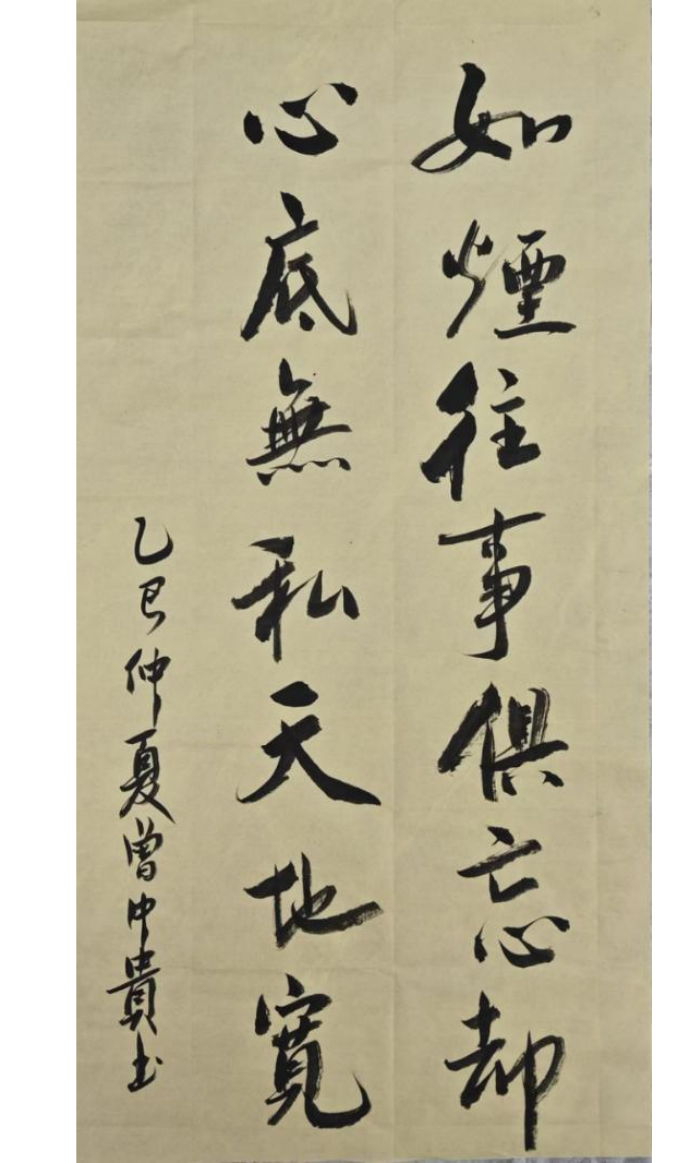 如煙往事俱忘却
心底無私天地寬
乙巳仲夏曾中貴书